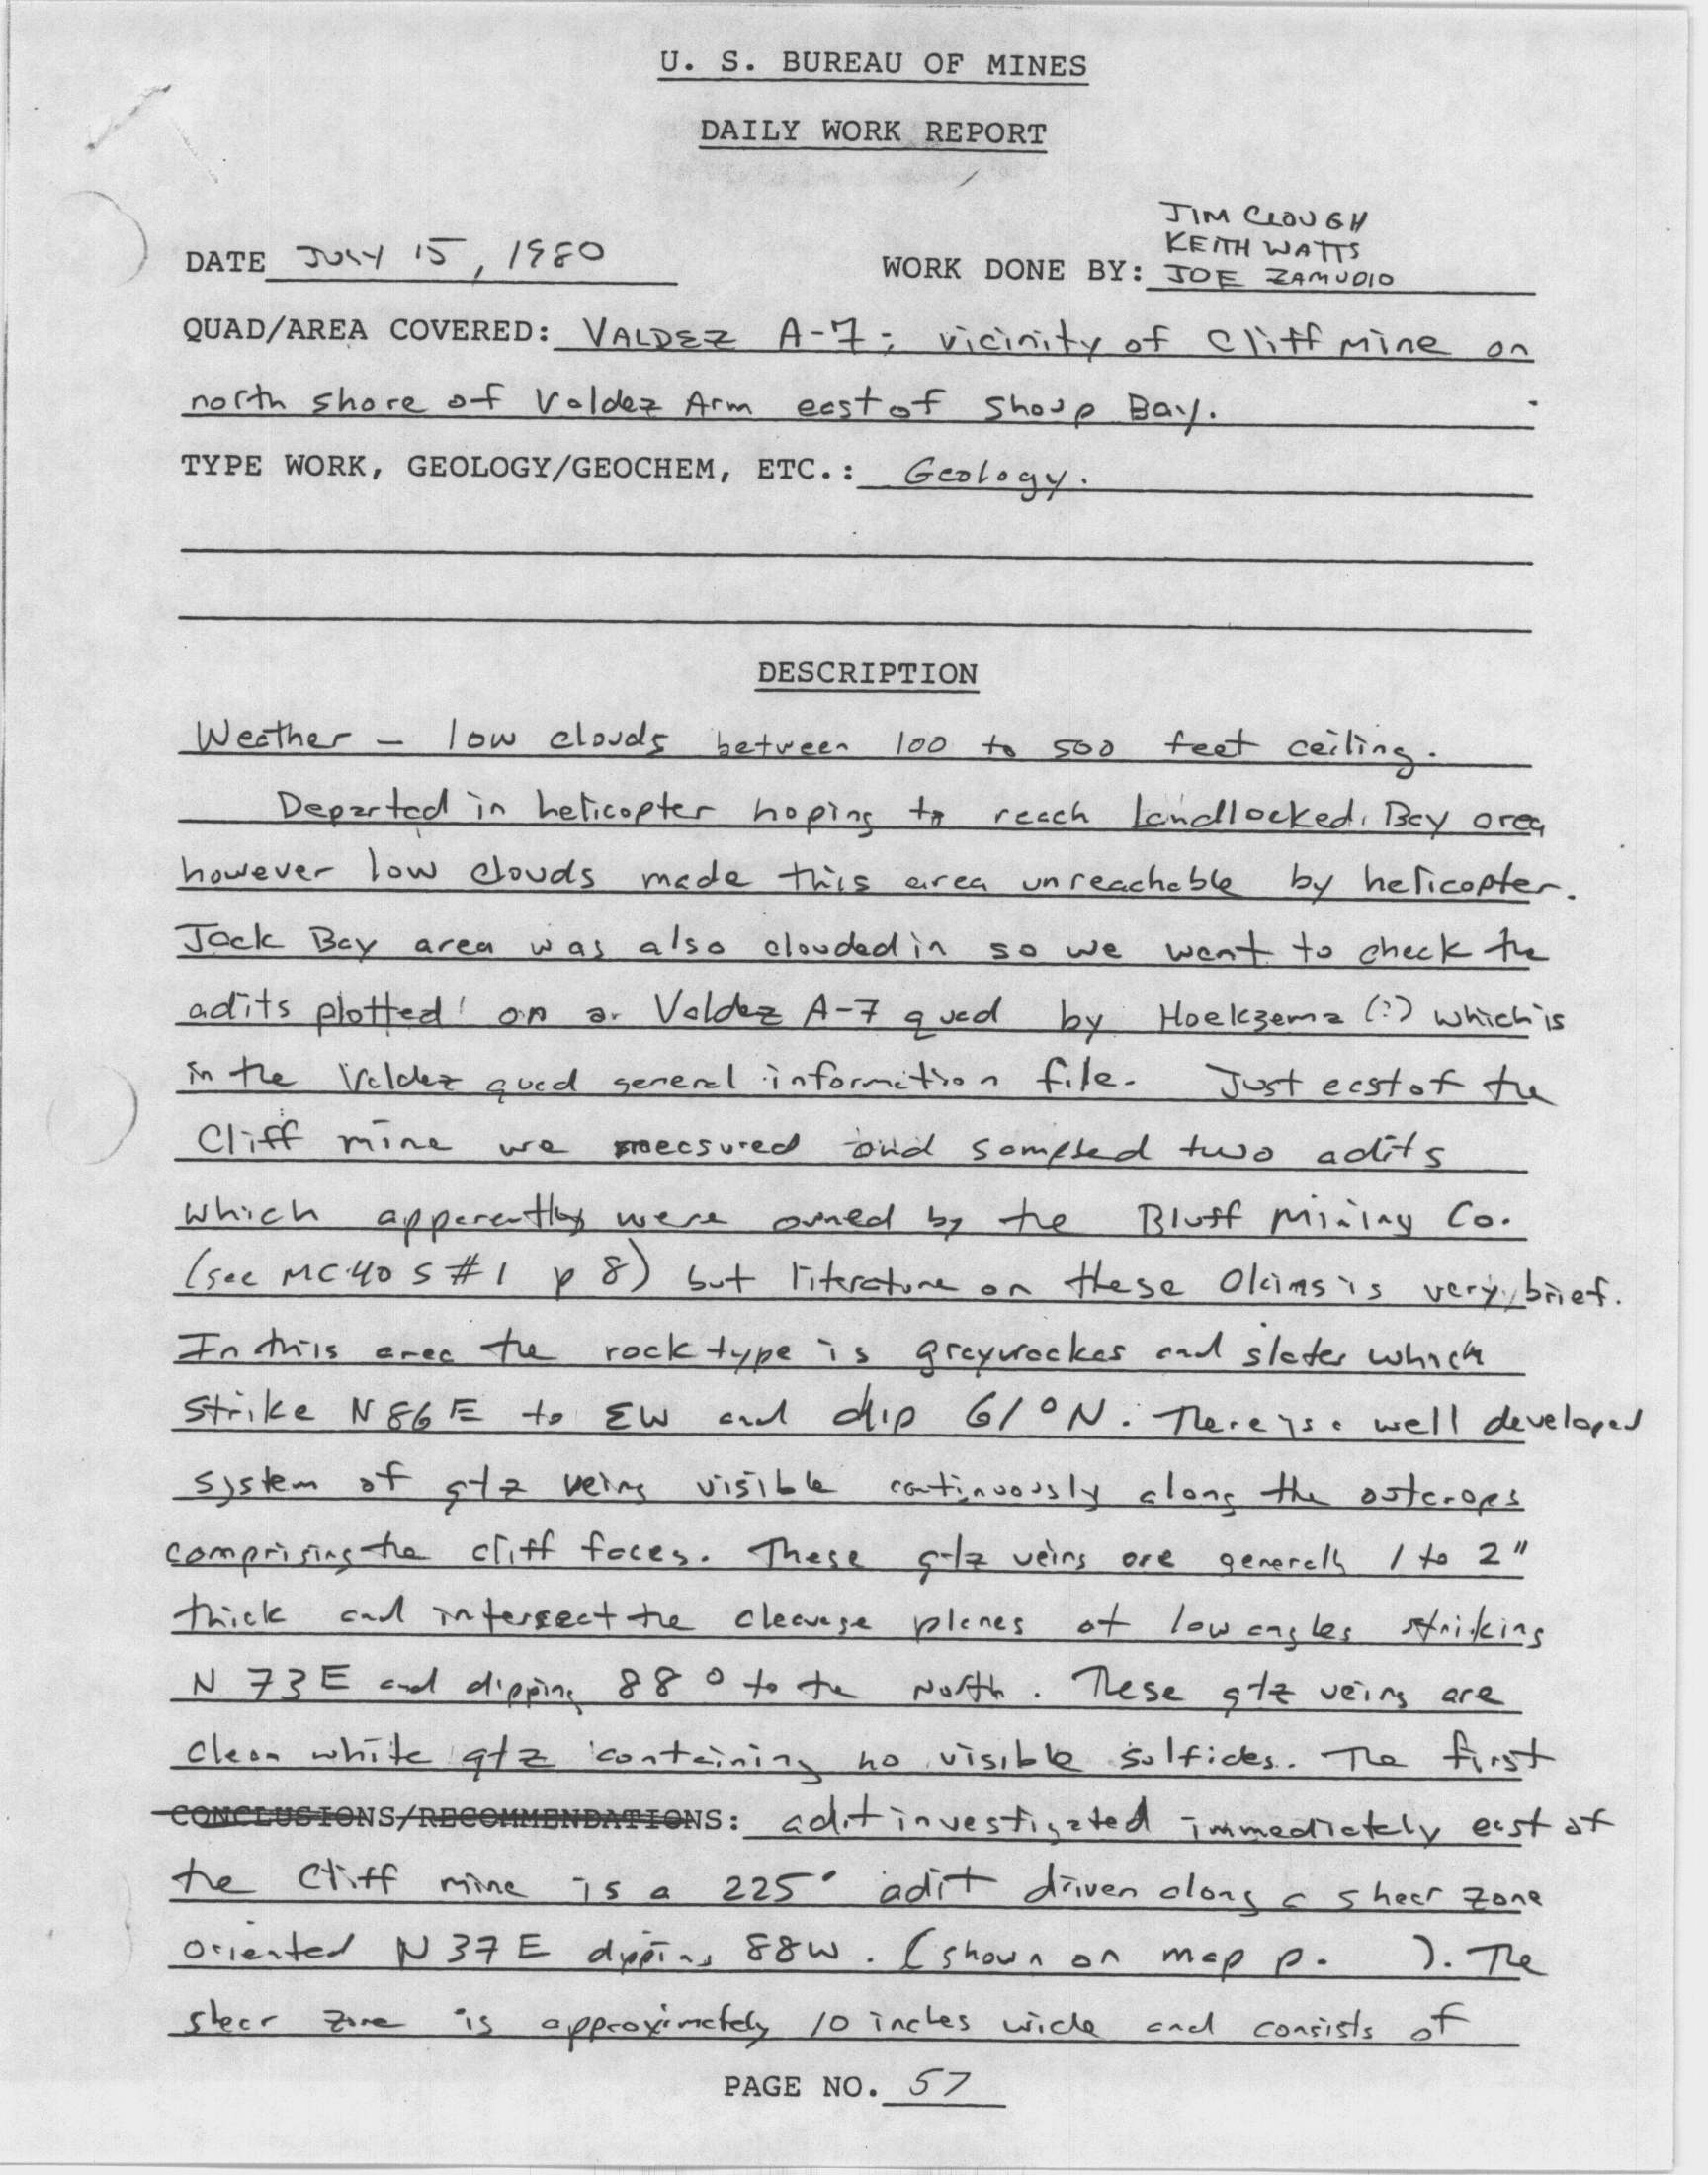 U. S. BUREAU OF MINES
DAILY WORK REPORT
JIM CLOUGH
KEITH WATTS
DATE JULY 15, 1980 WORK DONE BY: JOE ZAMUDIO
QUAD/AREA COVERED: VALDEZ A-7; vicinity of Cliff Mine on
north shore of Valdez Arm east of Shoup Bay.
TYPE WORK, GEOLOGY/GEOCHEM, ETC.: Geology.
DESCRIPTION
Weather - low clouds between 100 to 500 feet ceiling.
Departed in helicopter hoping to reach Landlocked Bay area
however low clouds made this area unreachable by helicopter.
Jack Bay area was also clouded in so we went to check the
adits plotted on a Valdez A-7 quad by Hoekzema (?) which is
in the Valdez quad general information file. Just east of the
Cliff mine we measured and sampled two adits
which apparently were owned by the Bluff Mining Co.
(see MC 40 S #1 p 8) but literature on these is very brief.
In this area the rock type is graywackes and slates which
strike N86E to EW and dip 61°N. There is a well developed
system of qtz veins visible continuously along the outcrops
comprising the cliff faces. These qtz veins are generally 1 to 2"
thick and intersect the cleavage planes at low angles striking
N 73E and dipping 88° to the North. These qtz veins are
clean white qtz containing no visible sulfides. The first
CONCLUSIONS/RECOMMENDATIONS: adit investigated immediately east of
the Cliff mine is a 225' adit driven along a shear zone
oriented N37E dipping 88W. (shown on map p. ). The
shear zone is approximately 10 inches wide and consists of
PAGE NO. 57